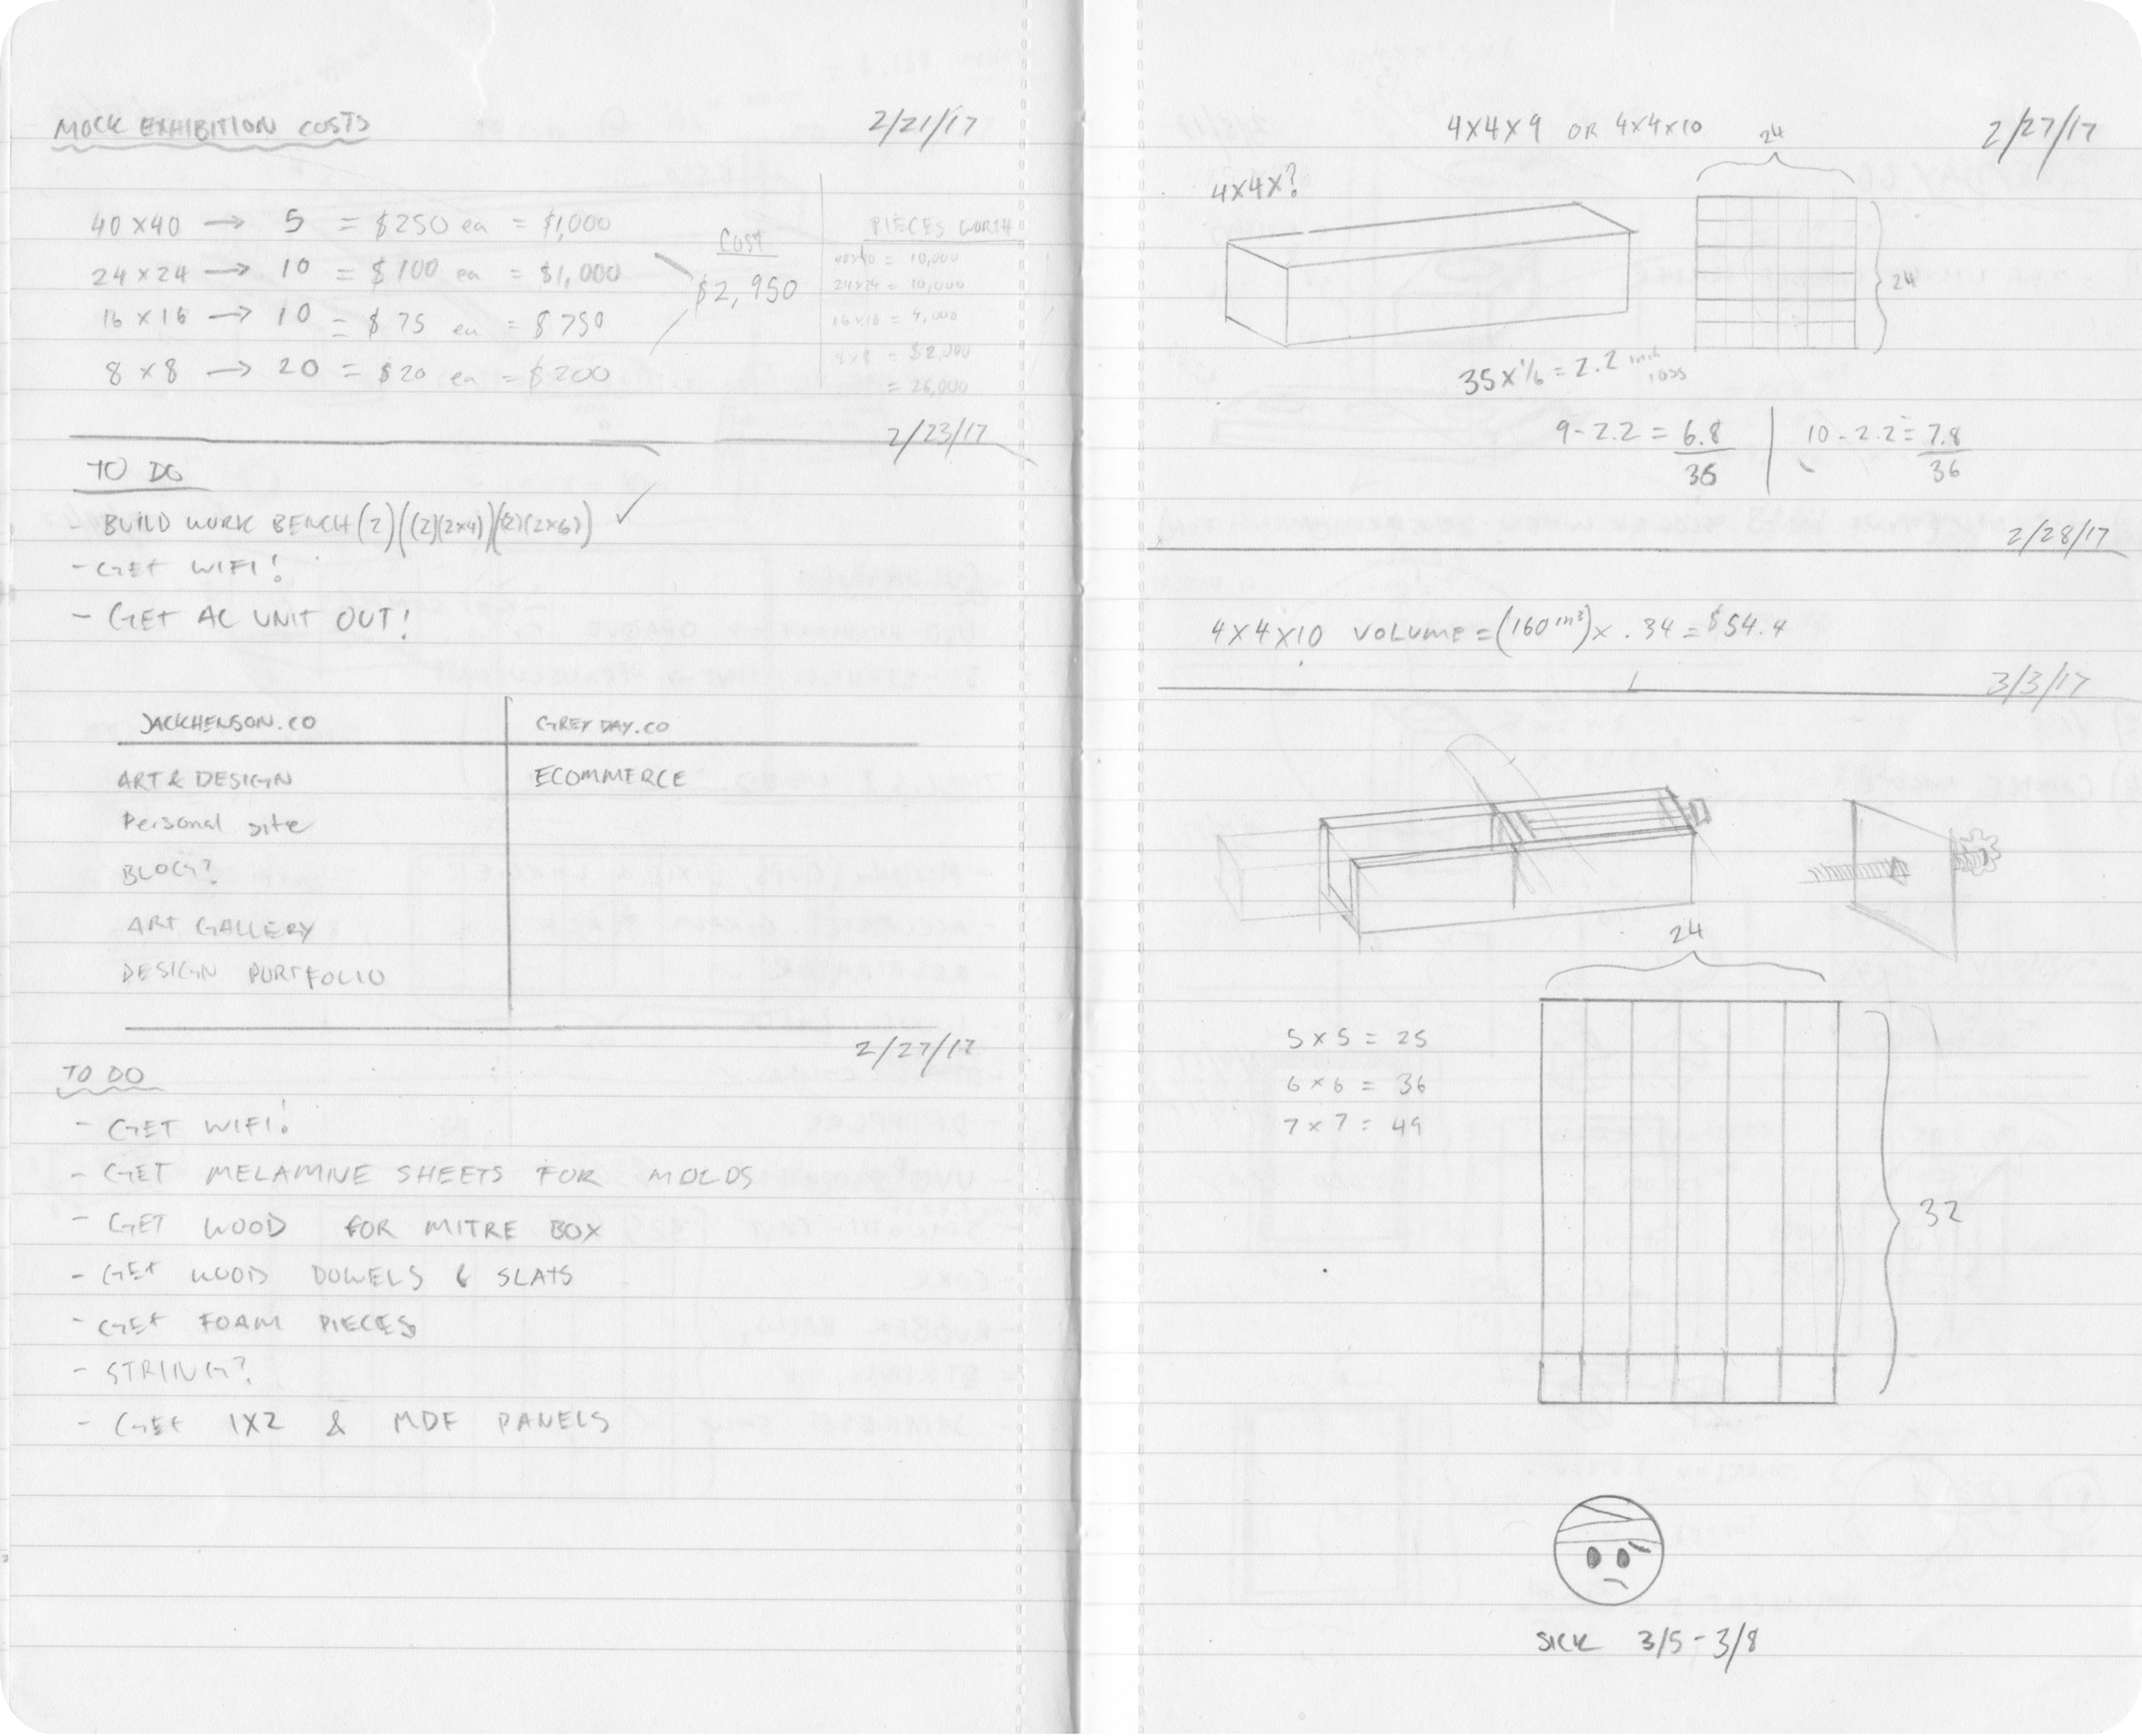 MOCK EXHIBITION COSTS 2/21/17
40x40 → 5 = $250 ea = $1,000
24x24 → 10 = $100 ea = $1,000
16x16 → 10 = $75 ea = $750
8x8 → 20 = $20 ea = $200
COST
$2,950
PIECES WORTH
40x40 = 10,000
24x24 = 10,000
16x16 = 4,000
8x8 = $2,000
= 26,000
2/23/17
TO DO
- BUILD WORK BENCH (2) ((2)(2x4)) (2)(2x6)) ✓
- GET WIFI!
- GET AC UNIT OUT!
JACKHENSON.CO GREYDAY.CO
ART & DESIGN ECOMMERCE
Personal site
BLOG?
ART GALLERY
DESIGN PORTFOLIO
2/27/17
TO DO
- GET WIFI!
- GET MELAMINE SHEETS FOR MOLDS
- GET WOOD FOR MITRE BOX
- GET WOOD DOWELS & SLATS
- GET FOAM PIECES
- STRING?
- GET 1X2 & MDF PANELS
4x4x9 OR 4x4x10 2/27/17
24
4x4x?
24
35 x 1/6 = 2.2 inch loss
9 - 2.2 = 6.8 | 10 - 2.2 = 7.8
36 36
2/28/17
4x4x10 VOLUME = (160 in³) x .34 = $54.4
3/3/17
24
5 x 5 = 25
6 x 6 = 36
7 x 7 = 49
32
SICK 3/5 - 3/8